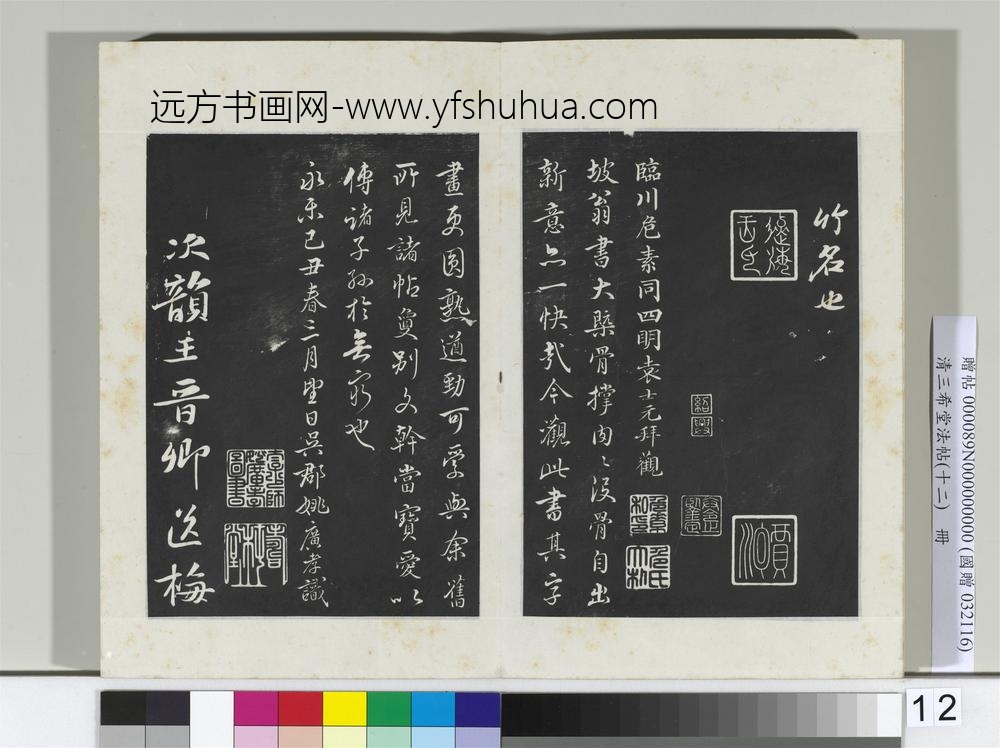 远方书画网-www.yfshuhua.com
竹名也
臨川危素同四明袁士元拜觀
坡翁書大槩骨撐肉肉沒骨自出
新意亦一快哉今觀此書其字
畫更圓熟遒勁可愛與余舊
所見諸帖夐別文幹當寶愛以
傳諸子孫於無窮也
永樂己丑春三月望日吳郡姚廣孝識
次韻王晉卿送梅
紹興
贈帖 0000089N000000000 (國贈 032116)
清三希堂法帖(十二) 冊
12